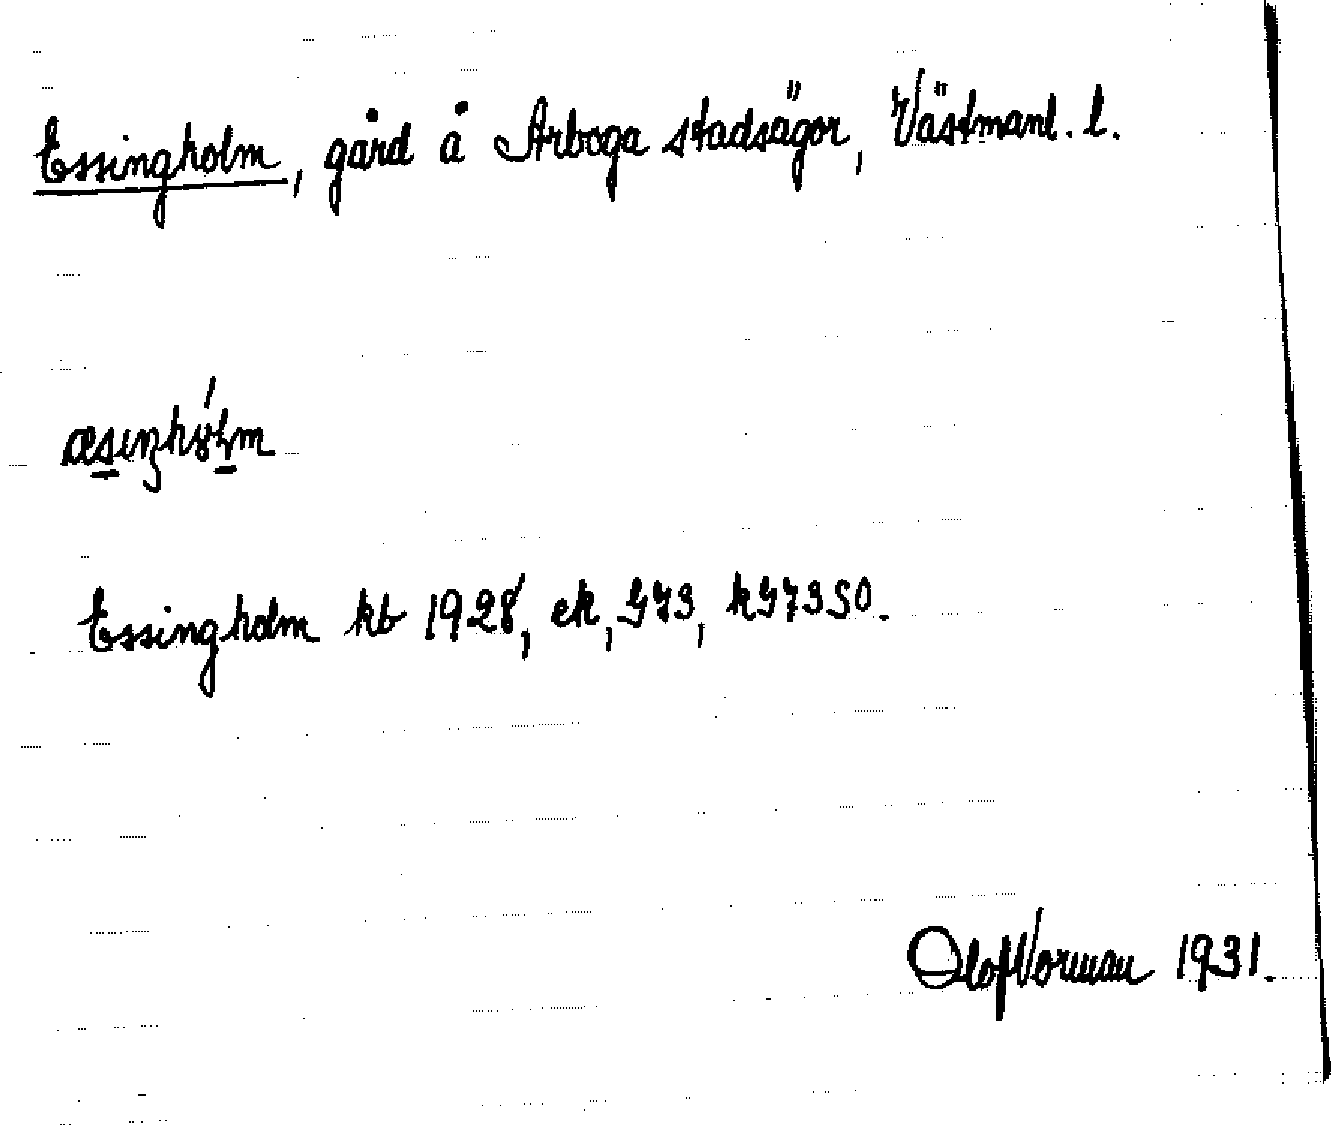 Essingholm, gård å Arboga stadsägor, Västmanl. l.
Essingholm kb 1928, ek, G73, kG73SO.
Olof Vorman 1931.